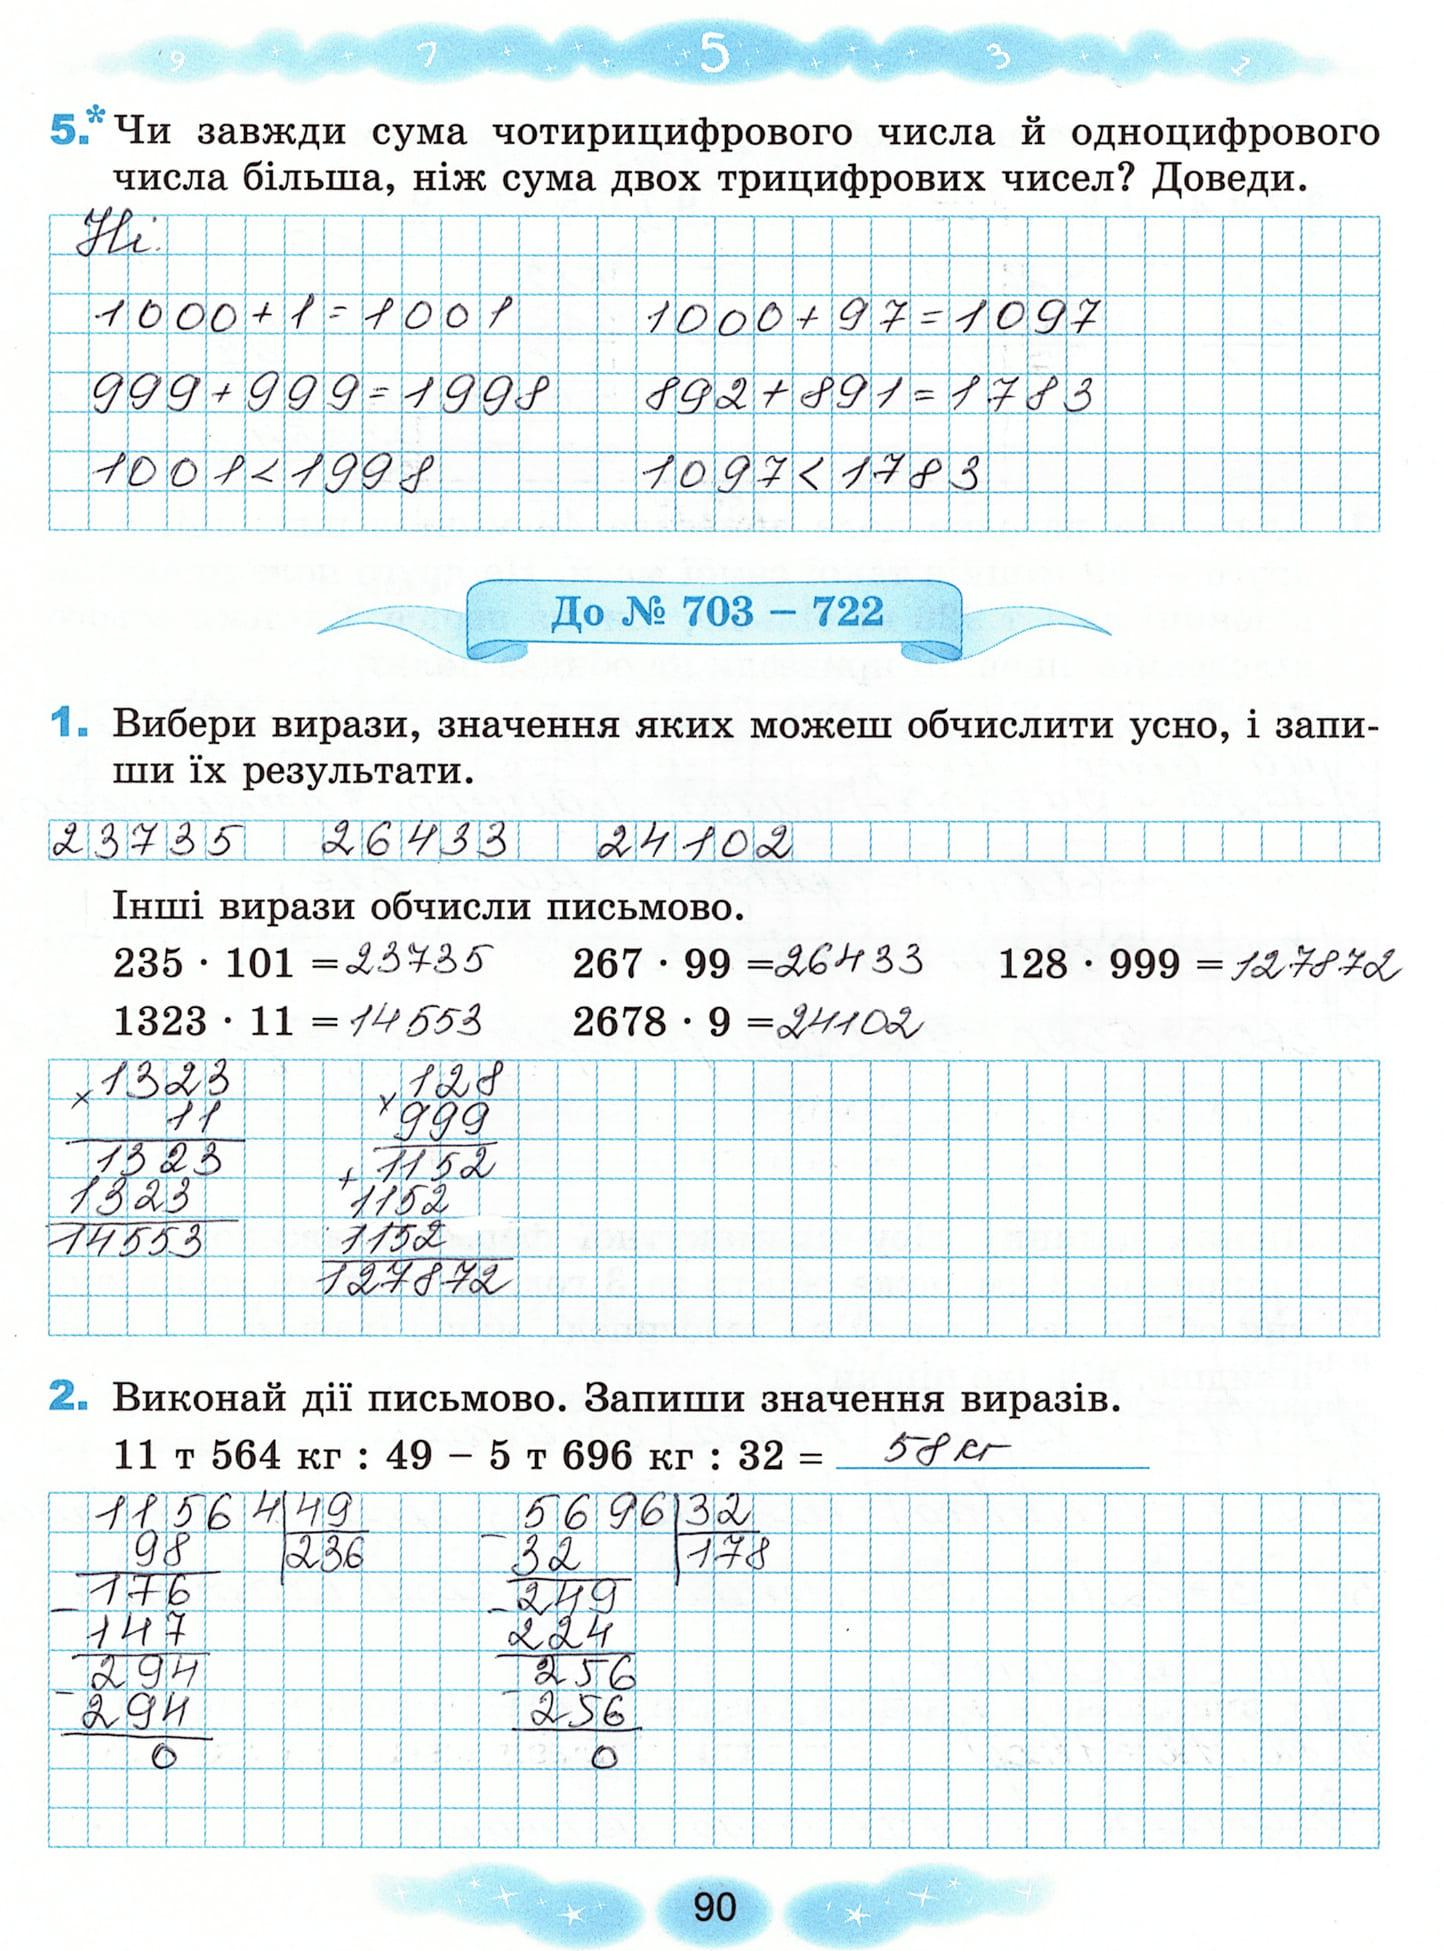 9 7 5 3 1
5.* Чи завжди сума чотирицифрового числа й одноцифрового
числа більша, ніж сума двох трицифрових чисел? Доведи.
Ні.
1000 + 1 = 1001 1000 + 97 = 1097
999 + 999 = 1998 892 + 891 = 1783
1001 < 1998 1097 < 1783
До № 703 – 722
1. Вибери вирази, значення яких можеш обчислити усно, і запи-
ши їх результати.
23735 26433 24102
Інші вирази обчисли письмово.
235 · 101 = 23735 267 · 99 = 26433 128 · 999 = 127872
1323 · 11 = 14553 2678 · 9 = 24102
× 1323 × 128
11 999
1323 + 1152
1323 1152
14553 1152
127872
2. Виконай дії письмово. Запиши значення виразів.
11 т 564 кг : 49 – 5 т 696 кг : 32 = 58 кг
11564 49 – 5696 32
98 236 32 178
– 176 – 249
147 224
– 294 – 256
294 256
0 0
90